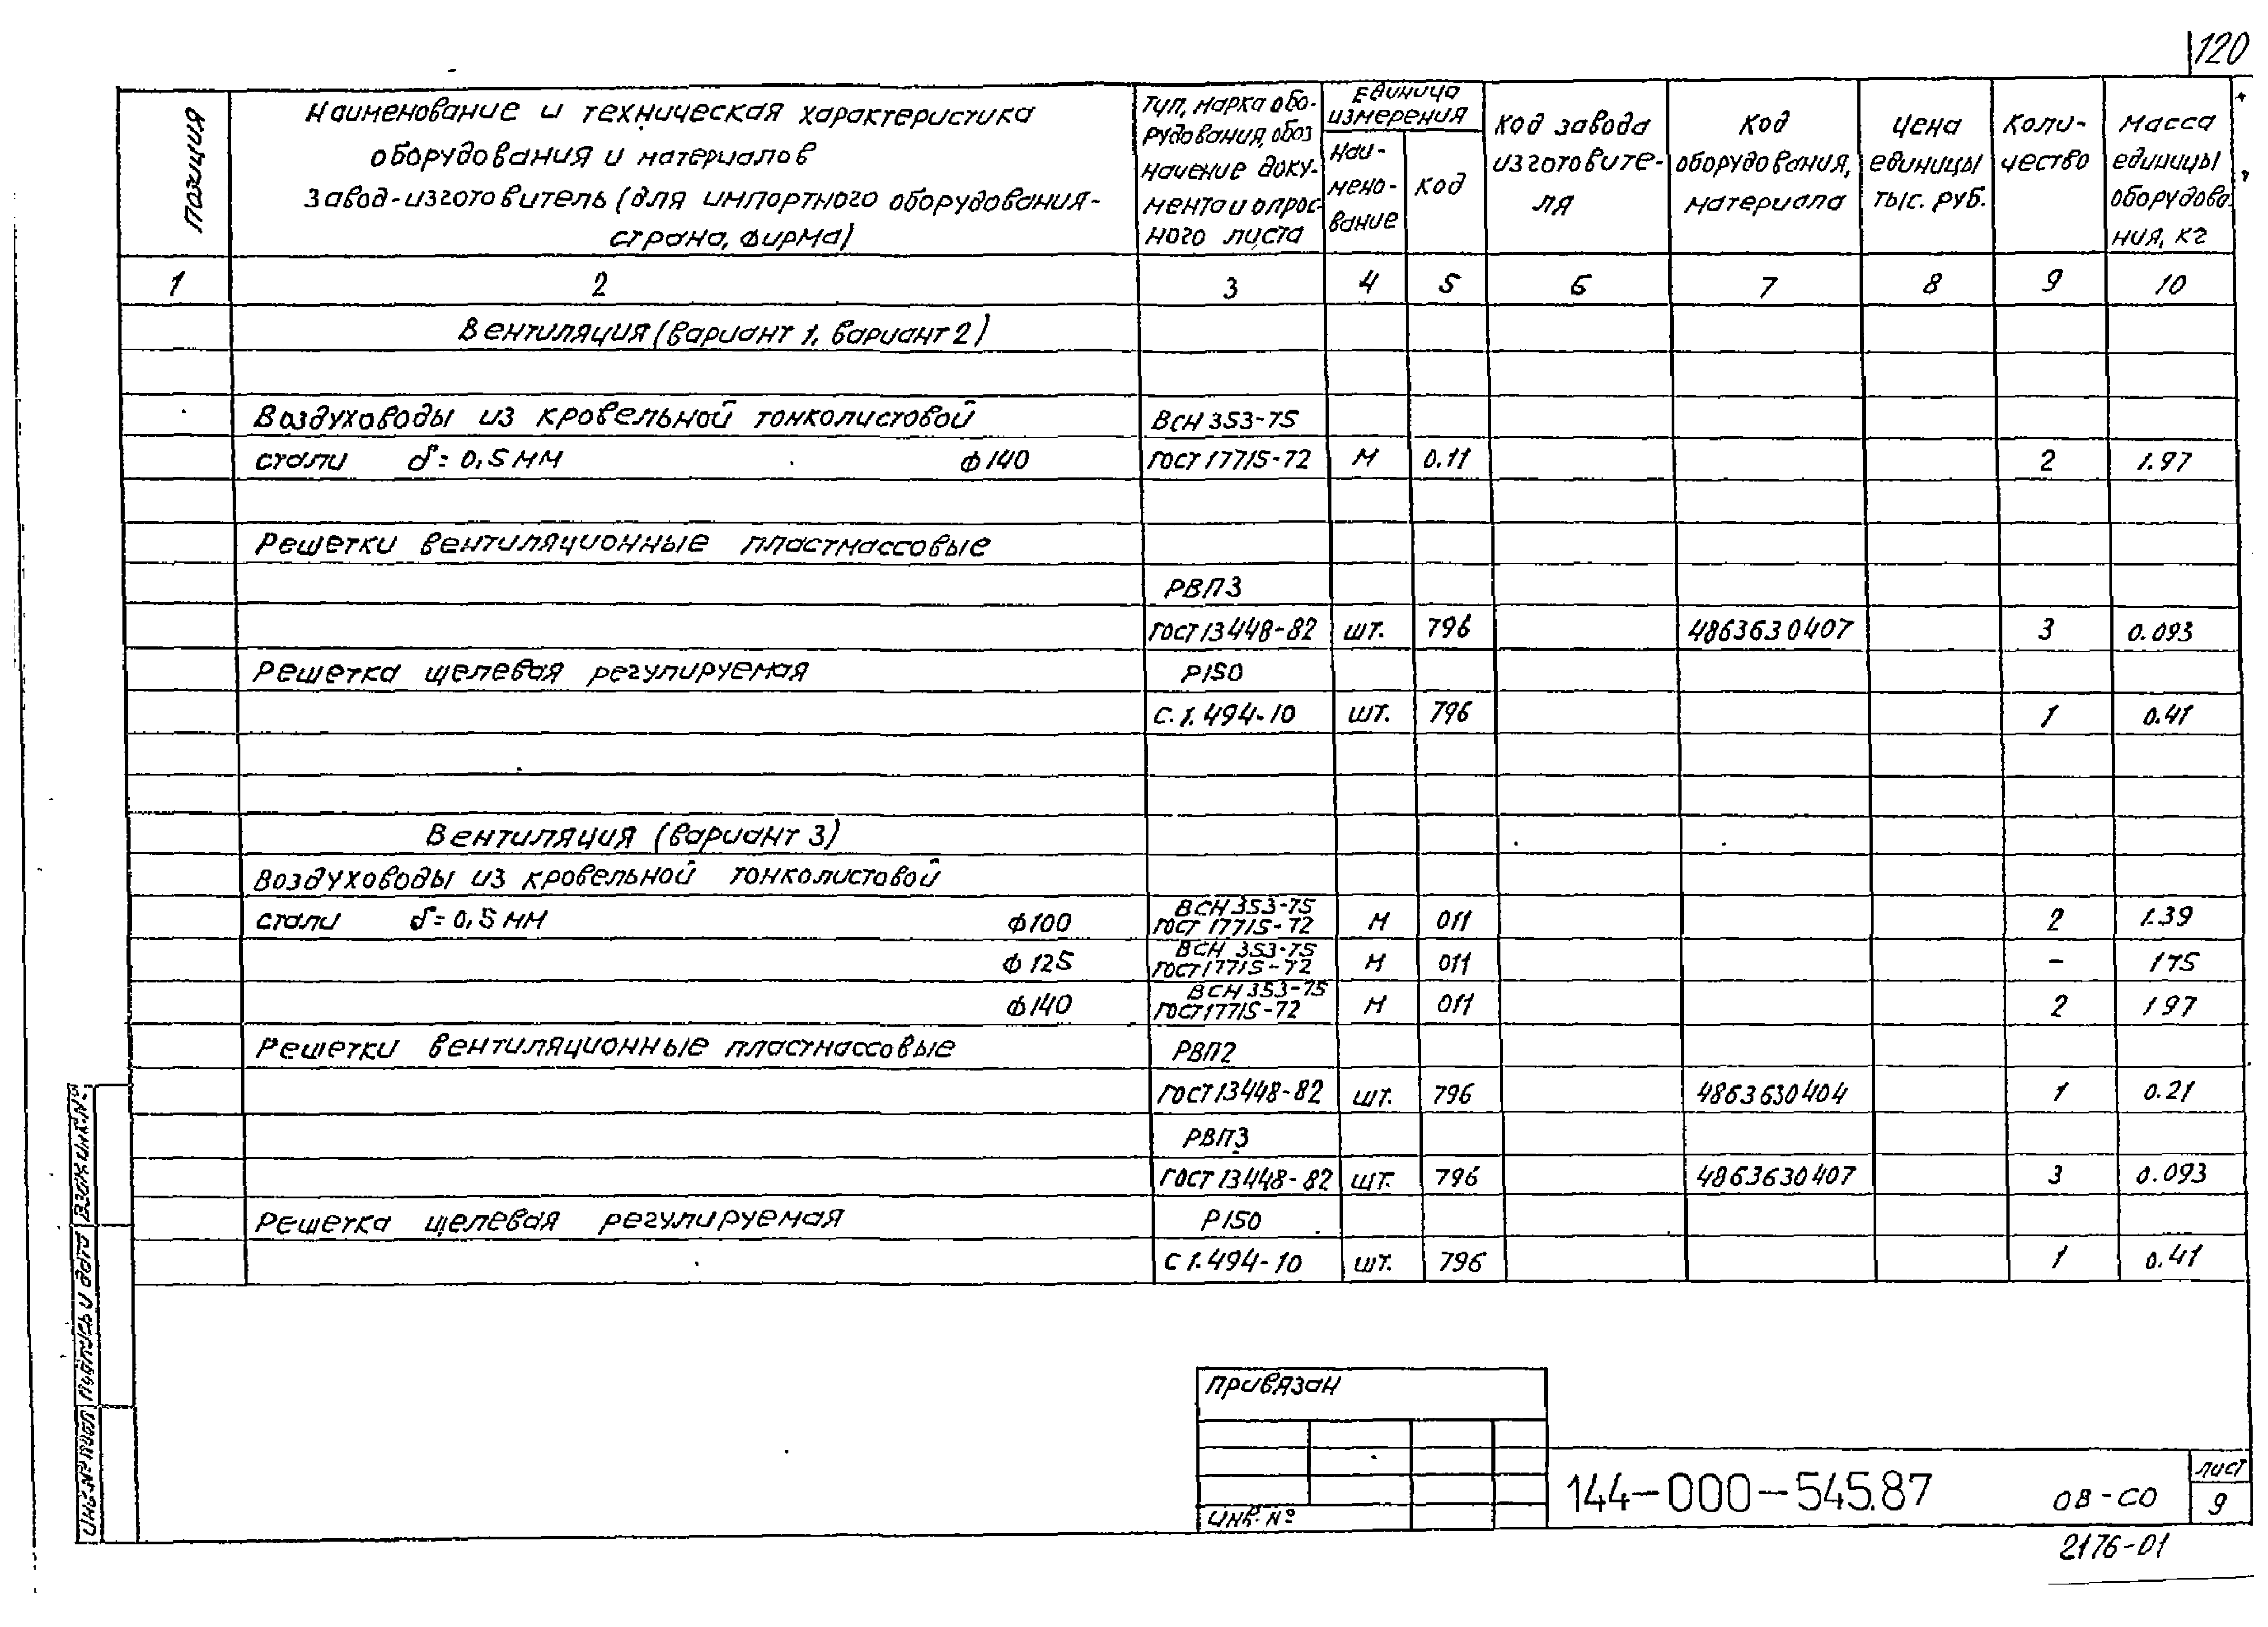 120
Позиция
Наименование и техническая характеристика
оборудования и материалов
Завод-изготовитель (для импортного оборудования-
страна, фирма)
Тип, марка обо-
рудования, обоз
начение доку-
мента и опрос-
ного листа
Единица
измерения
Наи-
мено-
вание
Код
Код завода
изготовите-
ля
Код
оборудования,
материала
Цена
единицы
тыс. руб.
Коли-
чество
Масса
единицы
оборудова
ния, кг
1 2 3 4 5 6 7 8 9 10
Вентиляция (вариант 1, вариант 2)
Воздуховоды из кровельной тонколистовой ВСН 353-75
стали δ = 0,5 мм ф140 ГОСТ 17715-72 м 0.11 2 1.97
Решетки вентиляционные пластмассовые
РВП3
ГОСТ 13448-82 шт. 796 4863630407 3 0.093
Решетка щелевая регулируемая Р150
с. 1. 494-10 шт. 796 1 0.41
Вентиляция (вариант 3)
Воздуховоды из кровельной тонколистовой
стали δ = 0,5 мм ф100 ВСН 353-75 ГОСТ 17715-72 м 011 2 1.39
ф125 ВСН 353-75 ГОСТ 17715-72 м 011 - 175
ф140 ВСН 353-75 ГОСТ 17715-72 м 011 2 197
Решетки вентиляционные пластмассовые РВП2
ГОСТ 13448-82 шт. 796 4863630404 1 0.21
РВП3
ГОСТ 13448-82 шт. 796 4863630407 3 0.093
Решетка щелевая регулируемая Р150
с 1.494-10 шт. 796 1 0.41
Взам инв. №
Подпись и дата
Инв. № подл
Привязан
Инв. №
144-000-545.87
ОВ-СО
лист
9
2176-01